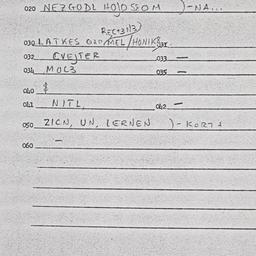 020 NEZGODL HO)OSSOM )-NA...
REC+31/3)
030 LATKES MEL/HONIK 031
032 CVEJTER 033 —
034 MOLZ 035 —
040 $
041 NITL, 042 —
050 ZICN, UN, LERNEN )-KORT
060 —